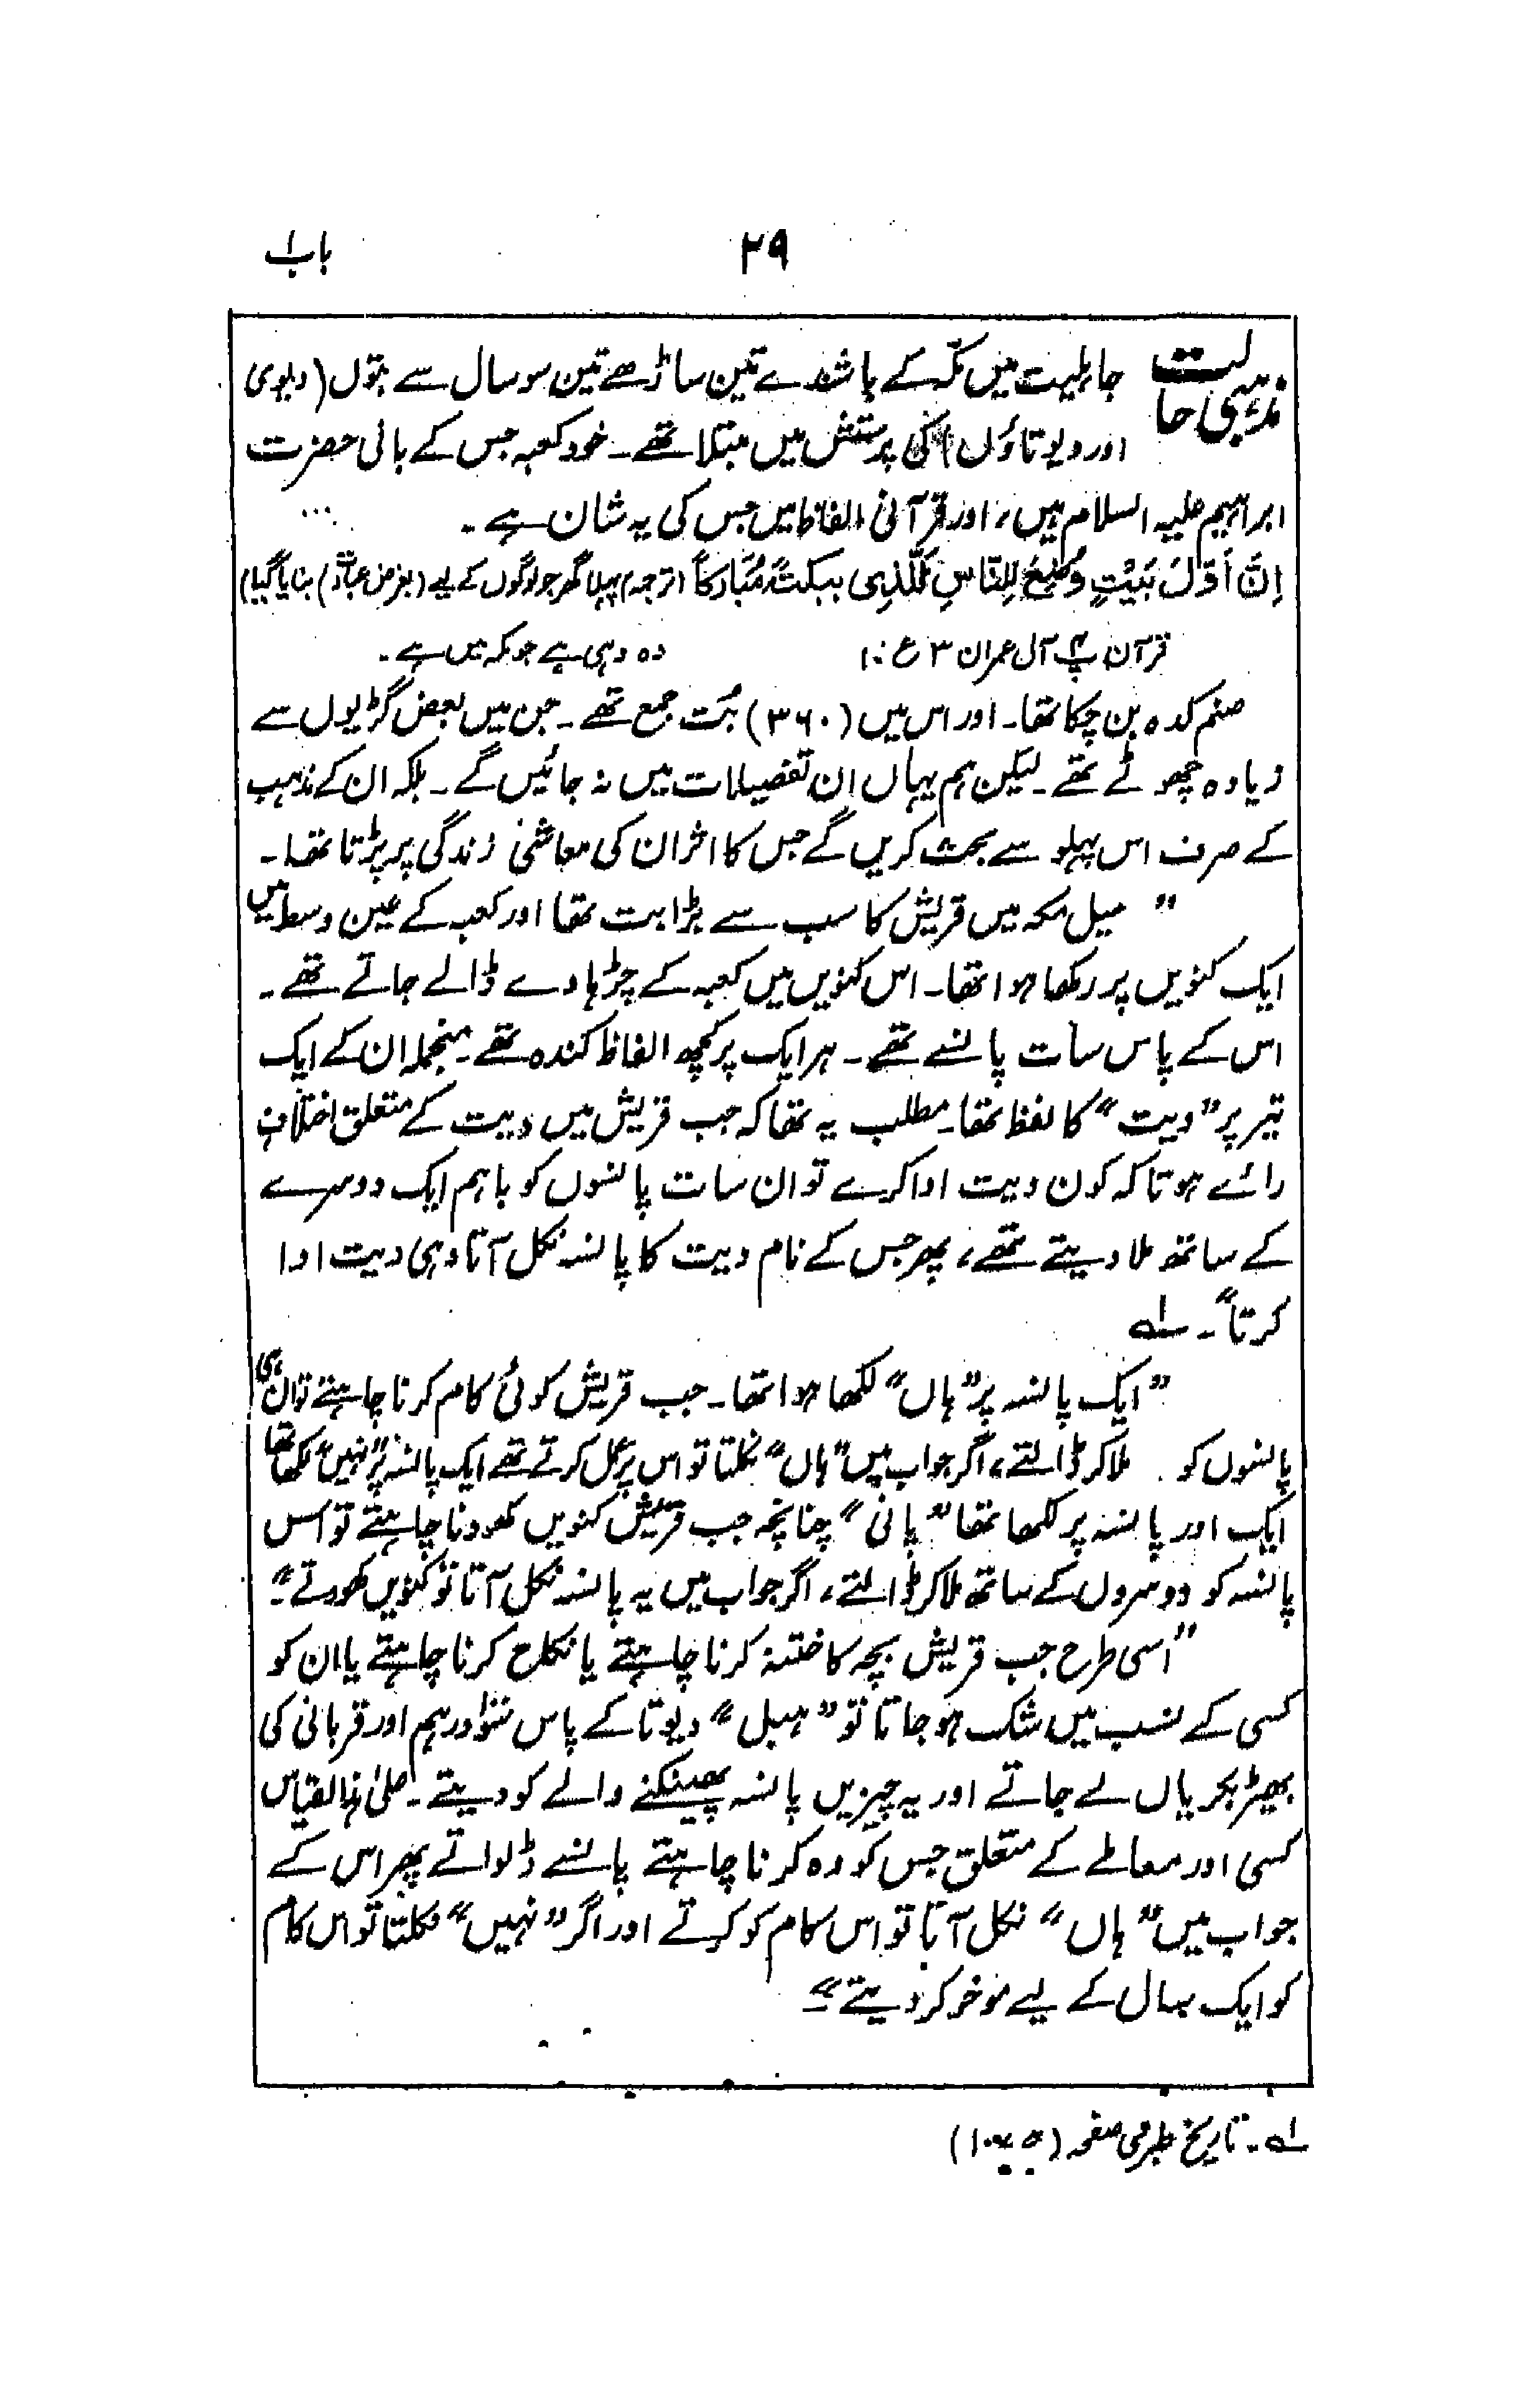 باب ۱
۲۹
مذہبی حالت
جاہلیت میں مکہ کے باشندے تین ساڑھے تین سو سال سے بتوں (دیوی
اور دیوتاؤں) کی پرستش میں مبتلا تھے۔ خود کعبہ جس کے بانی حضرت
ابراہیم علیہ السلام ہیں، اور قرآنی الفاظ میں جس کی یہ شان ہے۔
اِنَّ اَوَّلَ بَیْتٍ وُّضِعَ لِلنَّاسِ لَلَّذِی بِبَکَّۃَ مُبَارَکاً (ترجمہ) پہلا گھر جو لوگوں کے لیے (بغرض عبادت) بنایا گیا
قرآن پ۴ آل عمران ۳ ع ۱۰ وہ وہی ہے جو مکہ میں ہے۔
صنم کدہ بن چکا تھا۔ اور اس میں (۳۶۰) بُت جمع تھے۔ جن میں بعض گڑیوں سے
زیادہ چھوٹے تھے۔ لیکن ہم یہاں ان تفصیلات میں نہ جائیں گے۔ بلکہ ان کے مذہب
کے صرف اس پہلو سے بحث کریں گے جس کا اثر ان کی معاشی زندگی پر پڑتا تھا۔
” ہبل مکہ میں قریش کا سب سے بڑا بت تھا اور کعبہ کے عین وسط میں
ایک کنویں پر رکھا ہوا تھا۔ اس کنویں میں کعبہ کے چڑہاوے ڈالے جاتے تھے۔
اس کے پاس سات پانسے تھے۔ ہر ایک پر کچھ الفاظ کندہ تھے۔ منجملہ ان کے ایک
تیر پر ”دیت“ کا لفظ تھا۔ مطلب یہ تھا کہ جب قریش میں دیت کے متعلق اختلاف
رائے ہوتا کہ کون دیت ادا کرے تو ان سات پانسوں کو باہم ایک دوسرے
کے ساتھ ملا دیتے تھے، پھر جس کے نام دیت کا پانسہ نکل آتا وہی دیت ادا
کرتا“۔ ۱ہ
”ایک پانسہ پر ”ہاں“ لکھا ہوا تھا۔ جب قریش کوئی کام کرنا چاہتے تو ان ہی
پانسوں کو ملا کر ڈالتے، اگر جواب میں ”ہاں“ نکلتا تو اس پر عمل کرتے تھے ایک پانسہ پر ”نہیں“ لکھا تھا
ایک اور پانسہ پر لکھا تھا ”پانی“ چنانچہ جب قریش کنویں کھودنا چاہتے تو اس
پانسہ کو دوسروں کے ساتھ ملا کر ڈالتے، اگر جواب میں یہ پانسہ نکل آتا تو کنویں کھودتے“۔
”اسی طرح جب قریش بچہ کا ختنہ کرنا چاہتے یا نکاح کرنا چاہتے یا ان کو
کسی کے نسب میں شک ہو جاتا تو ”ہبل“ دیوتا کے پاس سو درہم اور قربانی کی
بھیڑ بکریاں لے جاتے اور یہ چیزیں پانسہ پھینکنے والے کو دیتے۔ علیٰ ہذا القیاس
کسی اور معاملے کے متعلق جس کو وہ کرنا چاہتے پانسے ڈلواتے پھر اس کے
جواب میں ”ہاں“ نکل آتا تو اس کام کو کرتے اور اگر ”نہیں“ نکلتا تو اس کام
کو ایک سال کے لیے موخر کر دیتے“۔
۱ہ۔ تاریخ طبری صفحہ